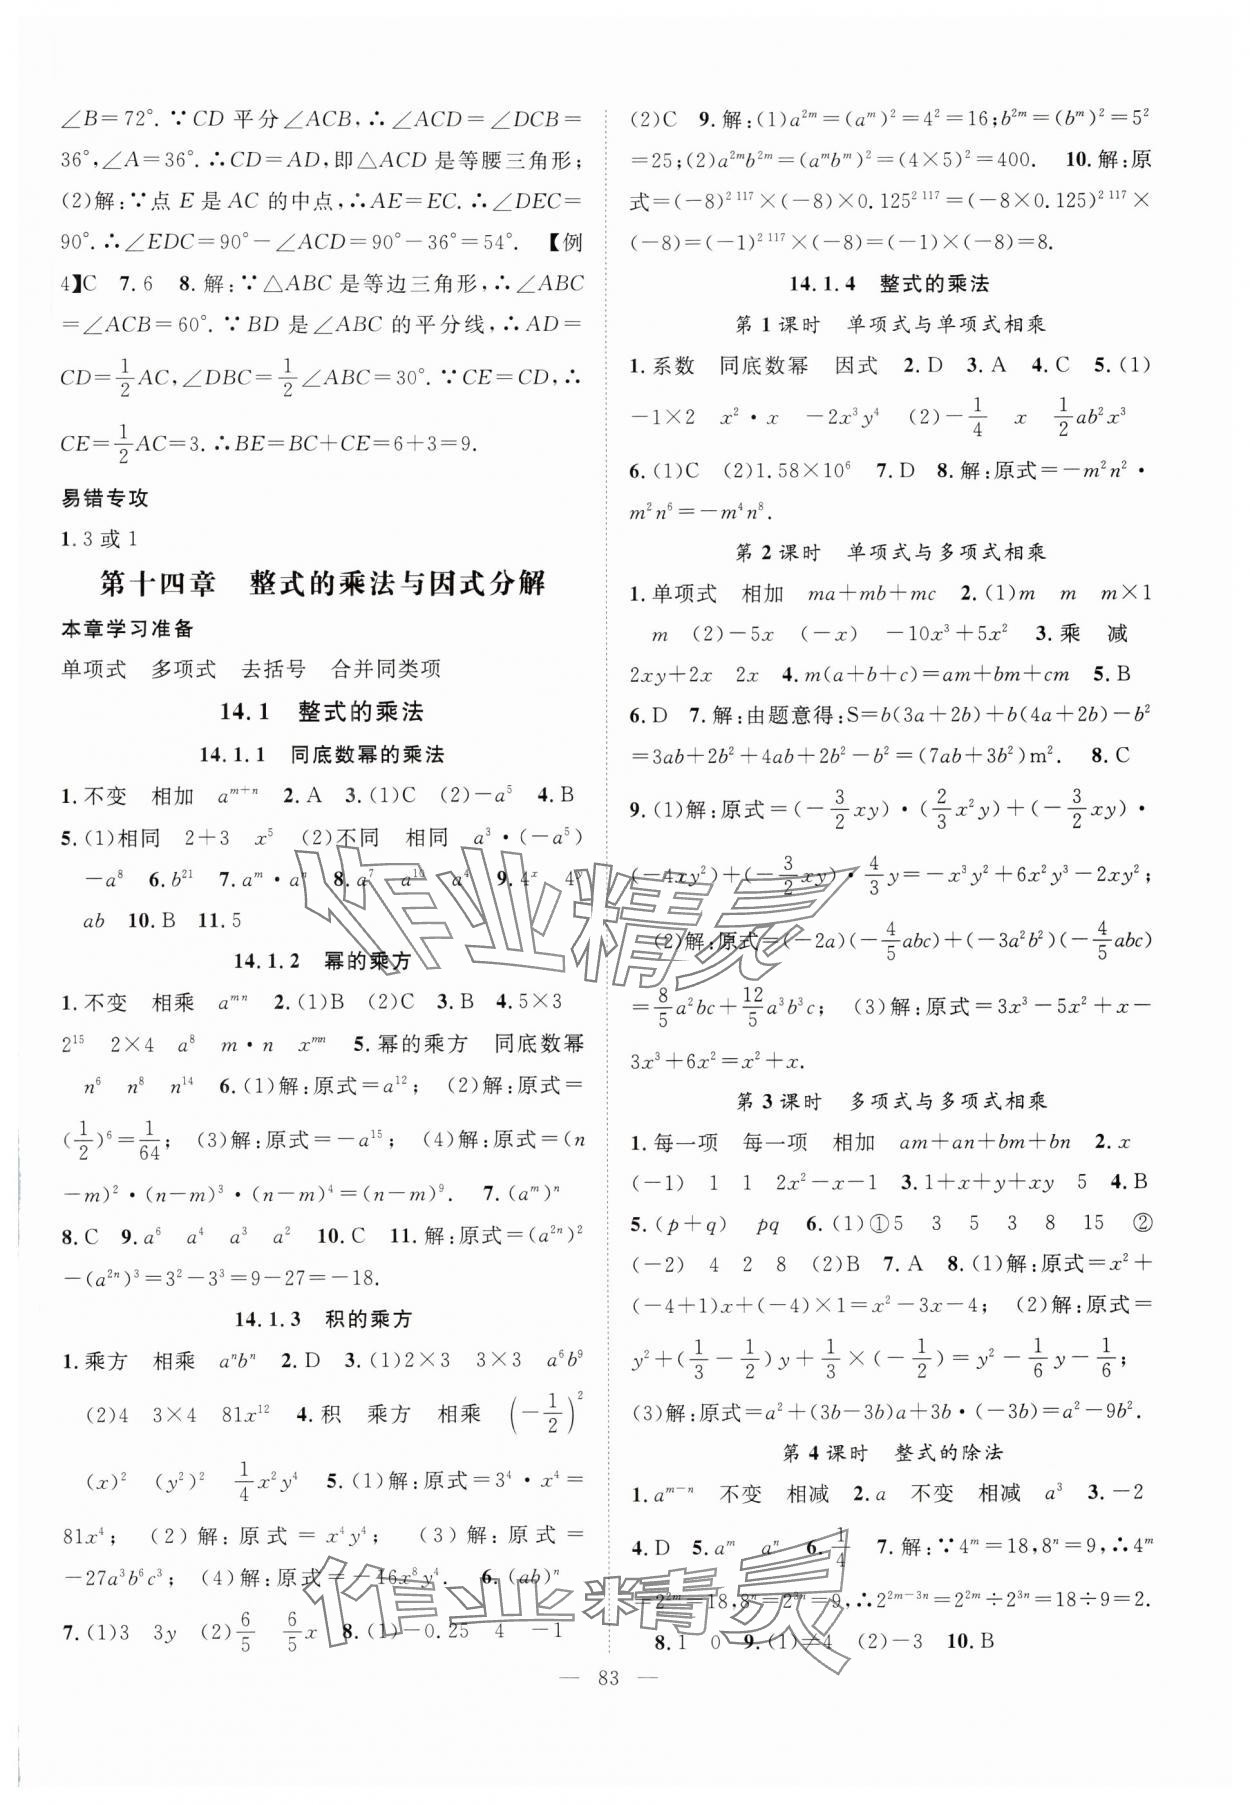 ∠B=72°. ∵CD 平分∠ACB,∴∠ACD=∠DCB=
36°,∠A=36°. ∴CD=AD,即△ACD 是等腰三角形;
(2)解:∵点 E 是 AC 的中点,∴AE=EC. ∴∠DEC=
90°. ∴∠EDC=90°-∠ACD=90°-36°=54°. 【例
4】C 7. 6 8. 解:∵△ABC 是等边三角形,∴∠ABC
=∠ACB=60°. ∵BD 是∠ABC 的平分线,∴AD=
CD=1/2 AC,∠DBC=1/2∠ABC=30°. ∵CE=CD,∴
CE=1/2 AC=3. ∴BE=BC+CE=6+3=9.
易错专攻
1. 3 或 1
第十四章 整式的乘法与因式分解
本章学习准备
单项式 多项式 去括号 合并同类项
14.1 整式的乘法
14.1.1 同底数幂的乘法
1. 不变 相加 a^{m+n} 2. A 3. (1)C (2)-a^5 4. B
5. (1)相同 2+3 x^5 (2)不同 相同 a^3·(-a^5)
-a^8 6. b^{21} 7. a^m·a^n 8. a^7 a^{10} a^4 9. 4^x 4^y
ab 10. B 11. 5
14.1.2 幂的乘方
1. 不变 相乘 a^{mn} 2. (1)B (2)C 3. B 4. 5×3
2^{15} 2×4 a^8 m·n x^{mn} 5. 幂的乘方 同底数幂
n^6 n^8 n^{14} 6. (1)解:原式=a^{12}; (2)解:原式=
(1/2)^6=1/64; (3)解:原式=-a^{15}; (4)解:原式=(n
-m)^2·(n-m)^3·(n-m)^4=(n-m)^9. 7. (a^m)^n
8. C 9. a^6 a^4 a^3 a^2 10. C 11. 解:原式=(a^{2n})^2
-(a^{2n})^3=3^2-3^3=9-27=-18.
14.1.3 积的乘方
1. 乘方 相乘 a^n b^n 2. D 3. (1)2×3 3×3 a^6b^9
(2)4 3×4 81x^{12} 4. 积 乘方 相乘 (-1/2)^2
(x)^2 (y^2)^2 1/4 x^2y^4 5. (1)解:原式=3^4·x^4=
81x^4; (2)解:原式=x^4y^4; (3)解:原式=
-27a^3b^6c^3; (4)解:原式=-46x^8y^4. 6. (ab)^n
7. (1)3 3y (2)6/5 6/5 x 8. (1)-0.25 4 -1
(2)C 9. 解:(1)a^{2m}=(a^m)^2=4^2=16;b^{2m}=(b^m)^2=5^2
=25;(2)a^{2m}b^{2m}=(a^m b^m)^2=(4×5)^2=400. 10. 解:原
式=(-8)^{2 117}×(-8)×0.125^{2 117}=(-8×0.125)^{2 117}×
(-8)=(-1)^{2 117}×(-8)=(-1)×(-8)=8.
14.1.4 整式的乘法
第 1 课时 单项式与单项式相乘
1. 系数 同底数幂 因式 2. D 3. A 4. C 5. (1)
-1×2 x^2·x -2x^3y^4 (2)-1/4 x 1/2 ab^2x^3
6. (1)C (2)1.58×10^6 7. D 8. 解:原式=-m^2n^2·
m^2n^6=-m^4n^8.
第 2 课时 单项式与多项式相乘
1. 单项式 相加 ma+mb+mc 2. (1)m m m×1
m (2)-5x (-x) -10x^3+5x^2 3. 乘 减
2xy+2x 2x 4. m(a+b+c)=am+bm+cm 5. B
6. D 7. 解:由题意得:S=b(3a+2b)+b(4a+2b)-b^2
=3ab+2b^2+4ab+2b^2-b^2=(7ab+3b^2)m^2. 8. C
9. (1)解:原式=(-3/2 xy)·(2/3 x^2y)+(-3/2 xy)·
(-4xy^2)+(-3/2 xy)·4/3 y=-x^3y^2+6x^2y^3-2xy^2;
(2)解:原式=(-2a)(-4/5 abc)+(-3a^2b^2)(-4/5 abc)
=8/5 a^2bc+12/5 a^3b^3c; (3)解:原式=3x^3-5x^2+x-
3x^3+6x^2=x^2+x.
第 3 课时 多项式与多项式相乘
1. 每一项 每一项 相加 am+an+bm+bn 2. x
(-1) 1 1 2x^2-x-1 3. 1+x+y+xy 5 4. B
5. (p+q) pq 6. (1)①5 3 5 3 8 15 ②
(-2) 4 2 8 (2)B 7. A 8. (1)解:原式=x^2+
(-4+1)x+(-4)×1=x^2-3x-4; (2)解:原式=
y^2+(1/3-1/2)y+1/3×(-1/2)=y^2-1/6 y-1/6;
(3)解:原式=a^2+(3b-3b)a+3b·(-3b)=a^2-9b^2.
第 4 课时 整式的除法
1. a^{m-n} 不变 相减 2. a 不变 相减 a^3 3. -2
4. D 5. a^m a^n 6. 1/4 7. 解:∵4^m=18,8^n=9,∴4^m
=2^{2m}=18,8^n=2^{3n}=9,∴2^{2m-3n}=2^{2m}÷2^{3n}=18÷9=2.
8. 1 0 9. (1)≠4 (2)-3 10. B
作业精灵
作业精灵
— 83 —